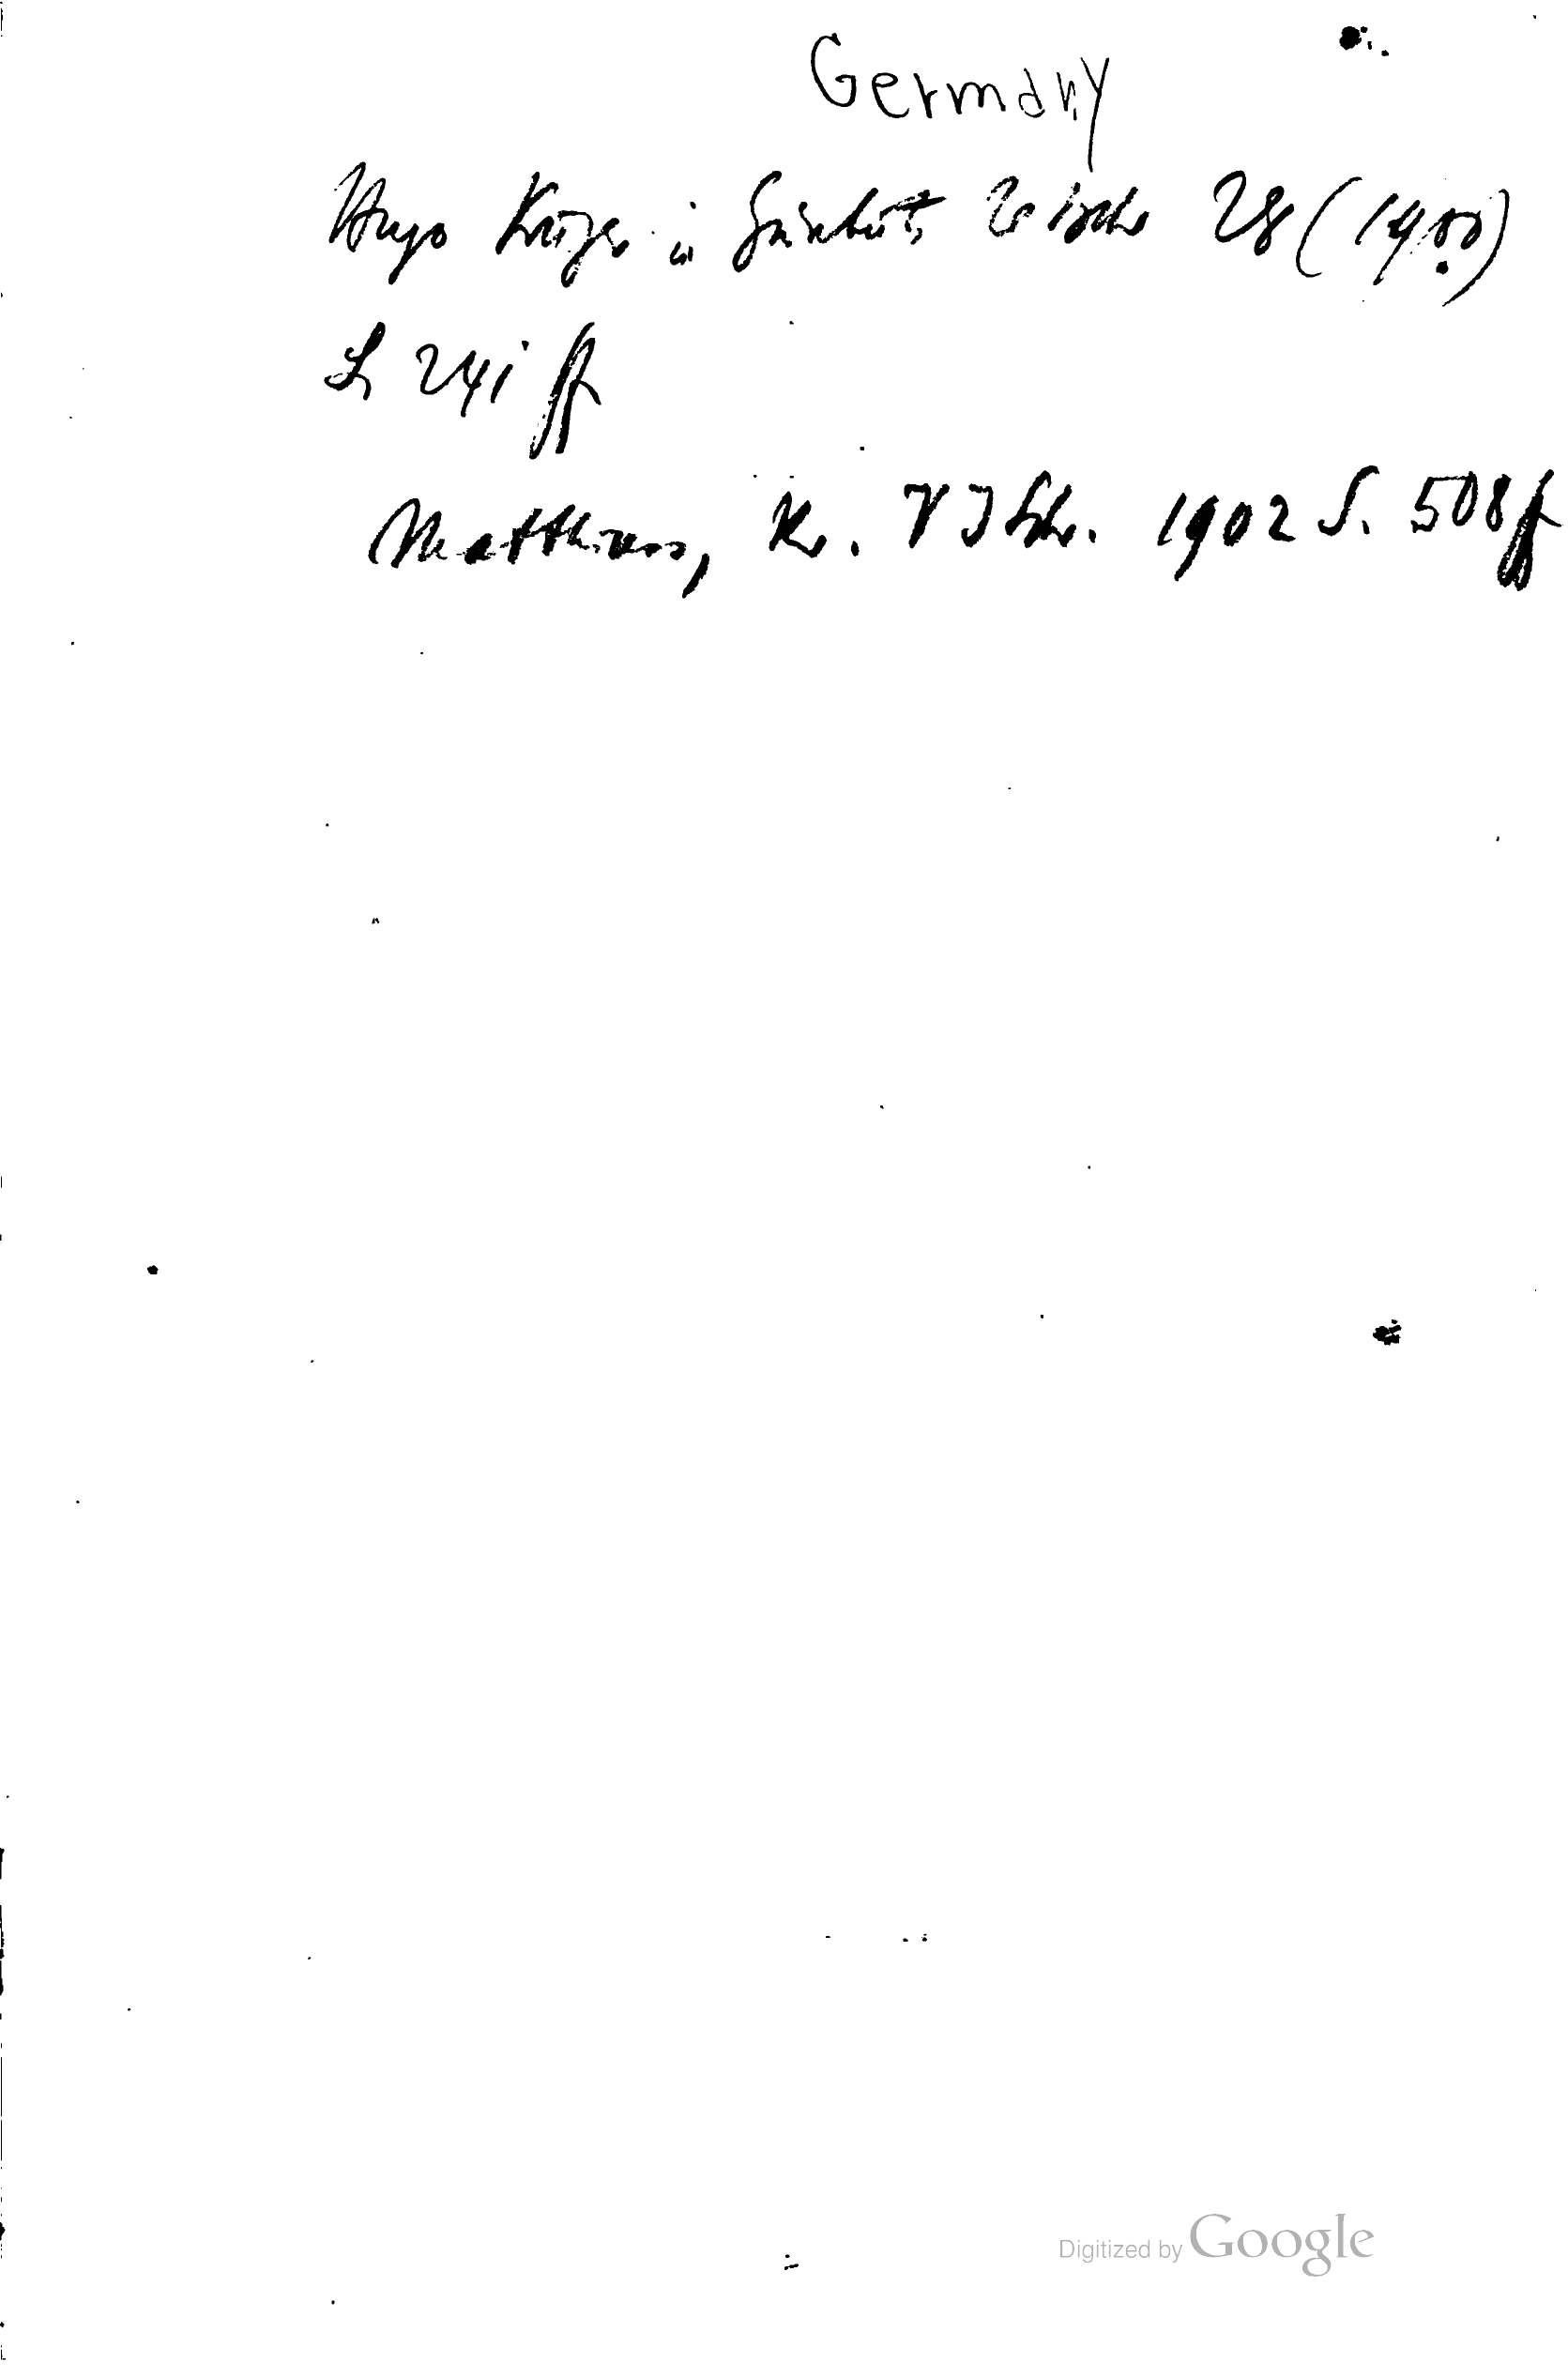 Germany
Hugo Krüger in Grünhuts Zeitschr 28 (1900)
S. 241 ff
Matthiass, Kr. VJSchr. 1902 S. 508 ff
Digitized by Google